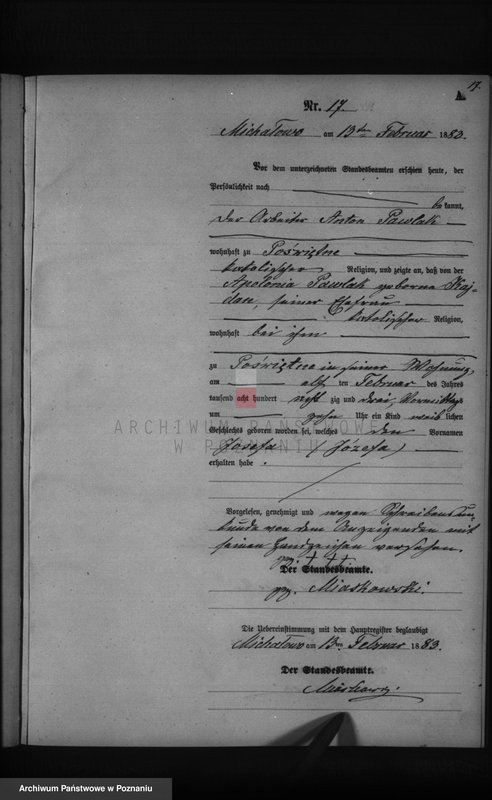 17.
A.
Nr. 17.
Michałowo am 13ten Februar 1883.
Vor dem unterzeichneten Standesbeamten erschien heute, der
Persönlichkeit nach
be kannt,
der Arbeiter Anton Pawlak
wohnhaft zu Pośrictne
katolischer Religion, und zeigte an, daß von der
Apolonia Pawlak geborne Kaj-
dan, seiner Ehefrau
katolischer Religion,
wohnhaft bei ihm
zu Pośrictne in seiner Wohnung
am elf ten Februar des Jahres
tausend acht hundert acht zig und drei Vormittags
um zehn Uhr ein Kind weib lichen
Geschlechts geboren worden sei, welches den Vornamen
Josefa (Józefa)
erhalten habe.
ARCHIWUM PAŃSTWOWE
W POZNANIU
Vorgelesen, genehmigt und wegen Schreibensun-
kunde von dem Anzeigenden mit
seinen Handzeichen versehen.
gez. + + +
Der Standesbeamte.
gez. Miaskowski.
Die Uebereinstimmung mit dem Hauptregister beglaubigt
Michałowo am 13ten Februar 1883.
Der Standesbeamte.
Archiwum Państwowe w Poznaniu